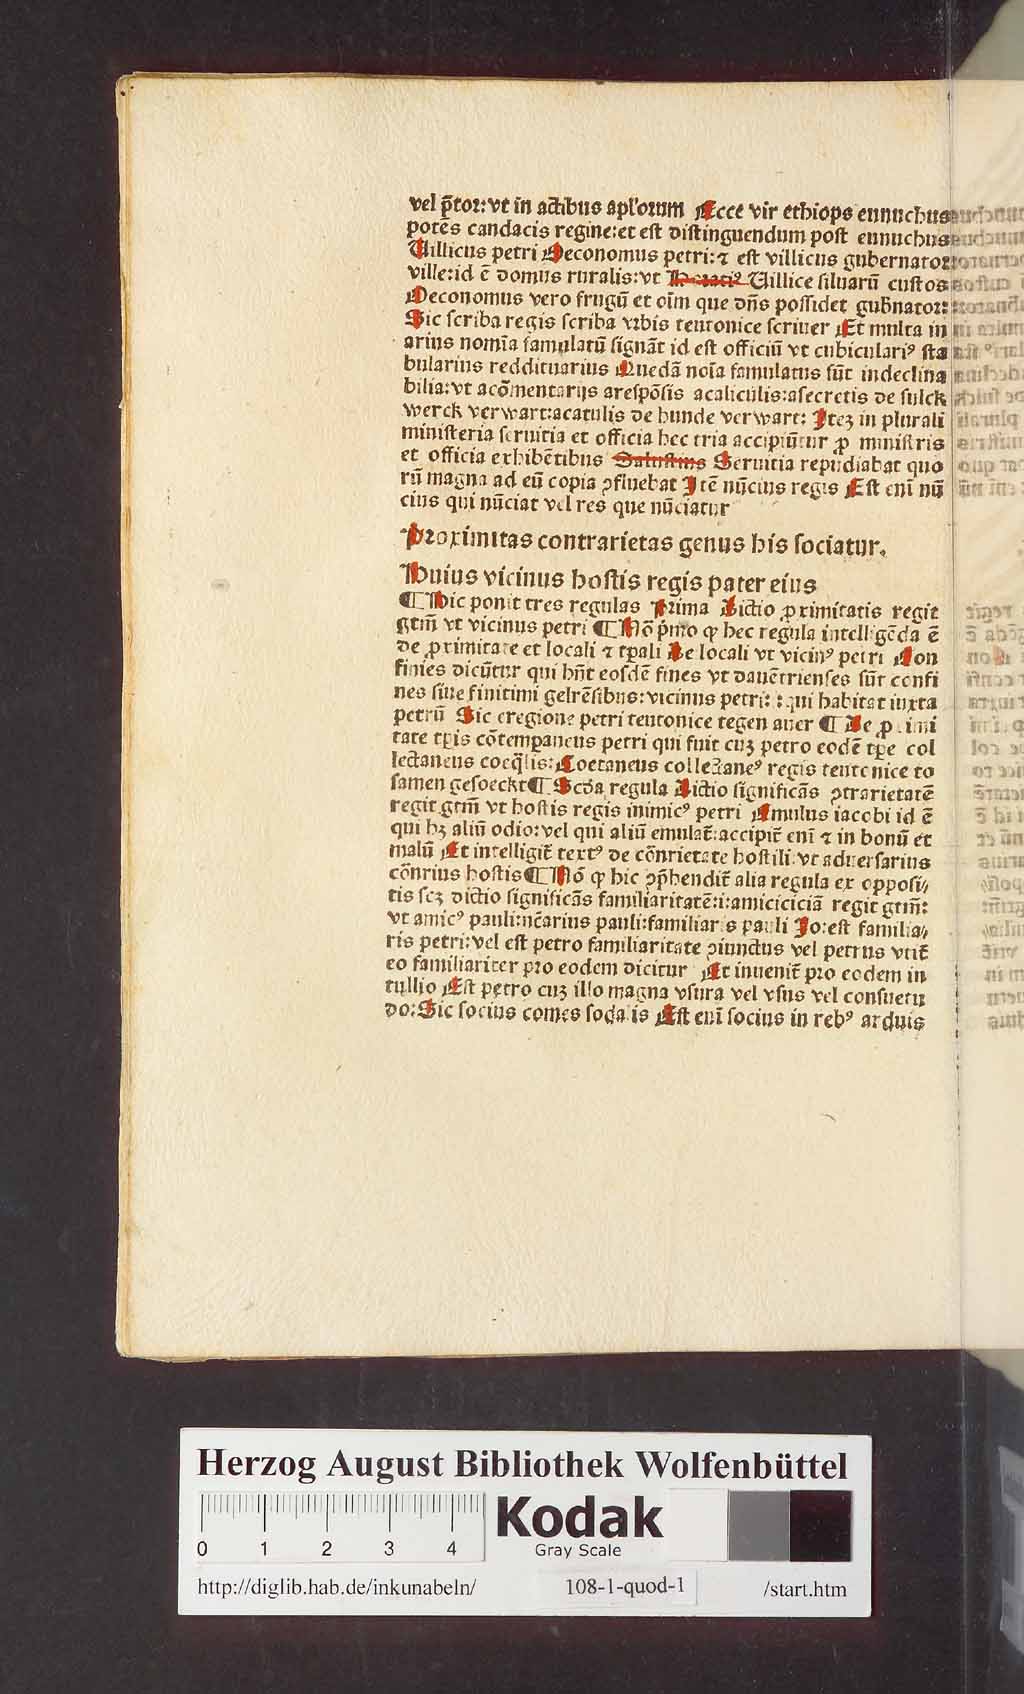 vel p̄tor: vt in actibus apl'orum Ecce vir ethiops eunuchus
potēs candacis regine: et est distinguendum post eunuchus
Uillicus petri Oeconomus petri: ⁊ est villicus gubernator
ville: id ē domus ruralis: vt Horatiꝰ Uillice siluarū custos
Oeconomus vero frugū et oīm que dn̄s possidet gub̄nator:
Sic scriba regis scriba vrbis teutonice scriuer Et multa in
arius nomīa famulatū signāt id est officiū vt cubiculariꝰ sta
bularius reddituarius Quedā noīa famulatus sūt indeclina
bilia: vt acōmentarijs arespōsis acaliculis: asecretis de sulck
werck verwart: acatulis de hunde verwart: Iteꝫ in plurali
ministeria seruitia et officia hec tria accipiūtur ꝓ ministris
et officia exhibētibus Salustius Seruitia repudiabat quo
rū magna ad eū copia ꝯfluebat Itē nūcius regis Est enī nū
cius qui nūciat vel res que nūciatur
Proximitas contrarietas genus his sociatur.
Huius vicinus hostis regis pater eius
¶ Hic ponit tres regulas Prima Dictio ꝓximitatis regit
gtm̄ vt vicinus petri ¶ Nō p̄mo ꝙ hec regula intelligēda ē
de ꝓximitate et locali ⁊ tp̄ali De locali vt vicinꝰ petri Con
finies dicūtur qui hn̄t eosdē fines vt dauētrienses sūt confi
nes siue finitimi gelrēsibus: vicinus petri: : qui habitat iuxta
petrū Sic eregione petri teutonice tegen auer ¶ De ꝓximi
tate tp̄is cōtemporaneus petri qui fuit cuꝫ petro eodē tp̄e col
lectaneus coeq̄lis: Coetaneus collectaneꝰ regis teutonice to
samen gesoeckt ¶ Scd̄a regula Dictio significās ꝯtrarietatē
regit gtm̄ vt hostis regis inimicꝰ petri Emulus iacobi id ē
qui hꝫ aliū odio: vel qui aliū emulat̄: accipit̄ enī ⁊ in bonū et
malū Et intelligit̄ textꝰ de cōnrietate hostili. vt aduersarius
cōnrius hostis ¶ Nō ꝙ hic ꝯp̄hendit̄ alia regula ex opposi⸗
tis scꝫ dictio significās familiaritatē: i: amiciciciā regit gtm̄:
vt amicꝰ pauli: nc̄arius pauli: familiaris pauli Jo: est familia⸗
ris petri: vel est petro familiaritate ꝯiunctus vel petrus vtit̄
eo familiariter pro eodem dicitur Et inuenit̄ pro eodem in
tullio Est petro cuꝫ illo magna vsura vel vsus vel consuetu
do: Sic socius comes sodalis Est enī socius in rebꝰ arduis
Herzog August Bibliothek Wolfenbüttel
0 1 2 3 4
Kodak
Gray Scale
http://diglib.hab.de/inkunabeln/ 108-1-quod-1 /start.htm